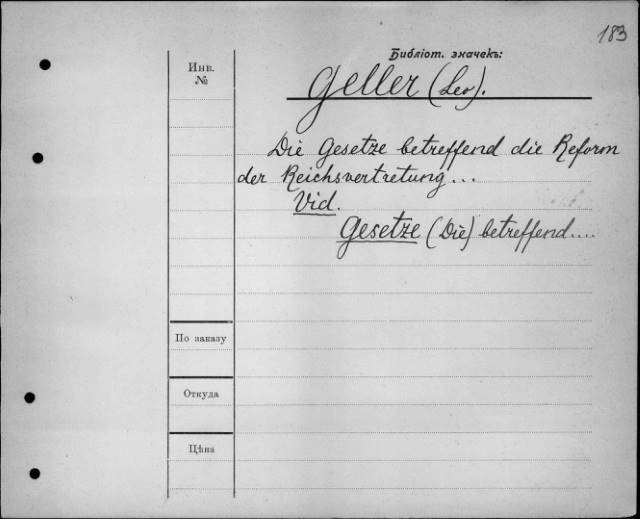 183
Библіот. значекъ:
Инв.
№
Geller (Leo).
Die Gesetze betreffend die Reform
der Reichsvertretung...
Vid.
Gesetze (Die) betreffend....
По заказу
Откуда
Цѣна